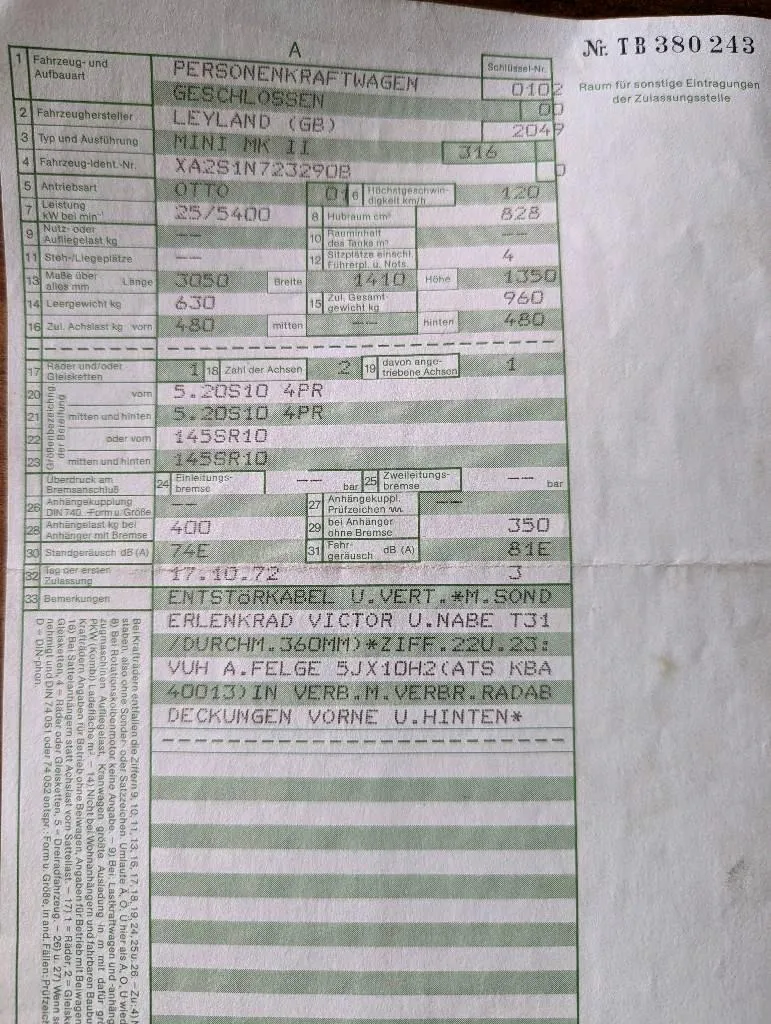 A
Nr. TB 380 243
Raum für sonstige Eintragungen
der Zulassungsstelle
1 Fahrzeug- und Aufbauart PERSONENKRAFTWAGEN Schlüssel-Nr. 0102
GESCHLOSSEN 00
2 Fahrzeughersteller LEYLAND (GB) 2049
3 Typ und Ausführung MINI MK II 316
4 Fahrzeug-Ident.-Nr. XA2S1N723290B 0
5 Antriebsart OTTO 01 6 Höchstgeschwindigkeit km/h 120
7 Leistung kW bei min⁻¹ 25/5400 8 Hubraum cm³ 828
9 Nutz- oder Aufliegelast kg -- 10 Rauminhalt des Tanks m³ --
11 Steh-/Liegeplätze -- 12 Sitzplätze einschl. Führerpl. u. Nots. 4
13 Maße über alles mm Länge 3050 Breite 1410 Höhe 1350
14 Leergewicht kg 630 15 Zul. Gesamtgewicht kg 960
16 Zul. Achslast kg vorn 480 mitten -- hinten 480
17 Räder und/oder Gleisketten 1 18 Zahl der Achsen 2 19 davon angetriebene Achsen 1
Größenbezeichnung der Bereifung
20 vorn 5.20S10 4PR
21 mitten und hinten 5.20S10 4PR
22 oder vorn 145SR10
23 mitten und hinten 145SR10
Überdruck am Bremsanschluß 24 Einleitungsbremse -- bar 25 Zweileitungsbremse -- bar
26 Anhängekupplung DIN 740.. Form u. Größe -- 27 Anhängekuppl. Prüfzeichen --
28 Anhängelast kg bei Anhänger mit Bremse 400 29 bei Anhänger ohne Bremse 350
30 Standgeräusch dB (A) 74E 31 Fahrgeräusch dB (A) 81E
32 Tag der ersten Zulassung 17.10.72 3
33 Bemerkungen ENTSTÖRKABEL U.VERT.*M.SOND
ERLENKRAD VICTOR U.NABE T31
/DURCHM.360MM)*ZIFF.22U.23:
VUH A.FELGE 5JX10H2(ATS KBA
40013)IN VERB.M.VERBR.RADAB
DECKUNGEN VORNE U.HINTEN*
Bei Krafträdern entfallen die Ziffern 9, 10, 11, 13, 16, 17, 18, 19, 24, 25 u. 26 – Zu: 4)
staben, also ohne Sonder- oder Satzzeichen. Umlaute Ä, Ö, Ü hier als A, O, U
8) Bei Rotationskolbenmotor keine Angabe. – 9) Bei: Lastkraftwagen und -anhäng
zugmaschinen Aufliegelast, Kranwagen größte Ausladung in m mit dafür
PKW (Kombi) Ladefläche m². – 14) Nicht bei Wohnanhängern und fahrbaren
Krafträdern Angaben für Betrieb ohne Beiwagen, Angaben für Betrieb mit Beiwagen
16) Bei Sattelanhängern statt Achslast vorn Sattellast. – 17) 1 = Räder, 2 =
Gleisketten, 4 = Räder oder Gleisketten, 5 = Dreiradfahrzeug. – 26) u. 27) Wenn
nehmigt und DIN 74 051 oder 74 052 entspr.: Form u. Größe, in and. Fällen:
D = DIN-phon.